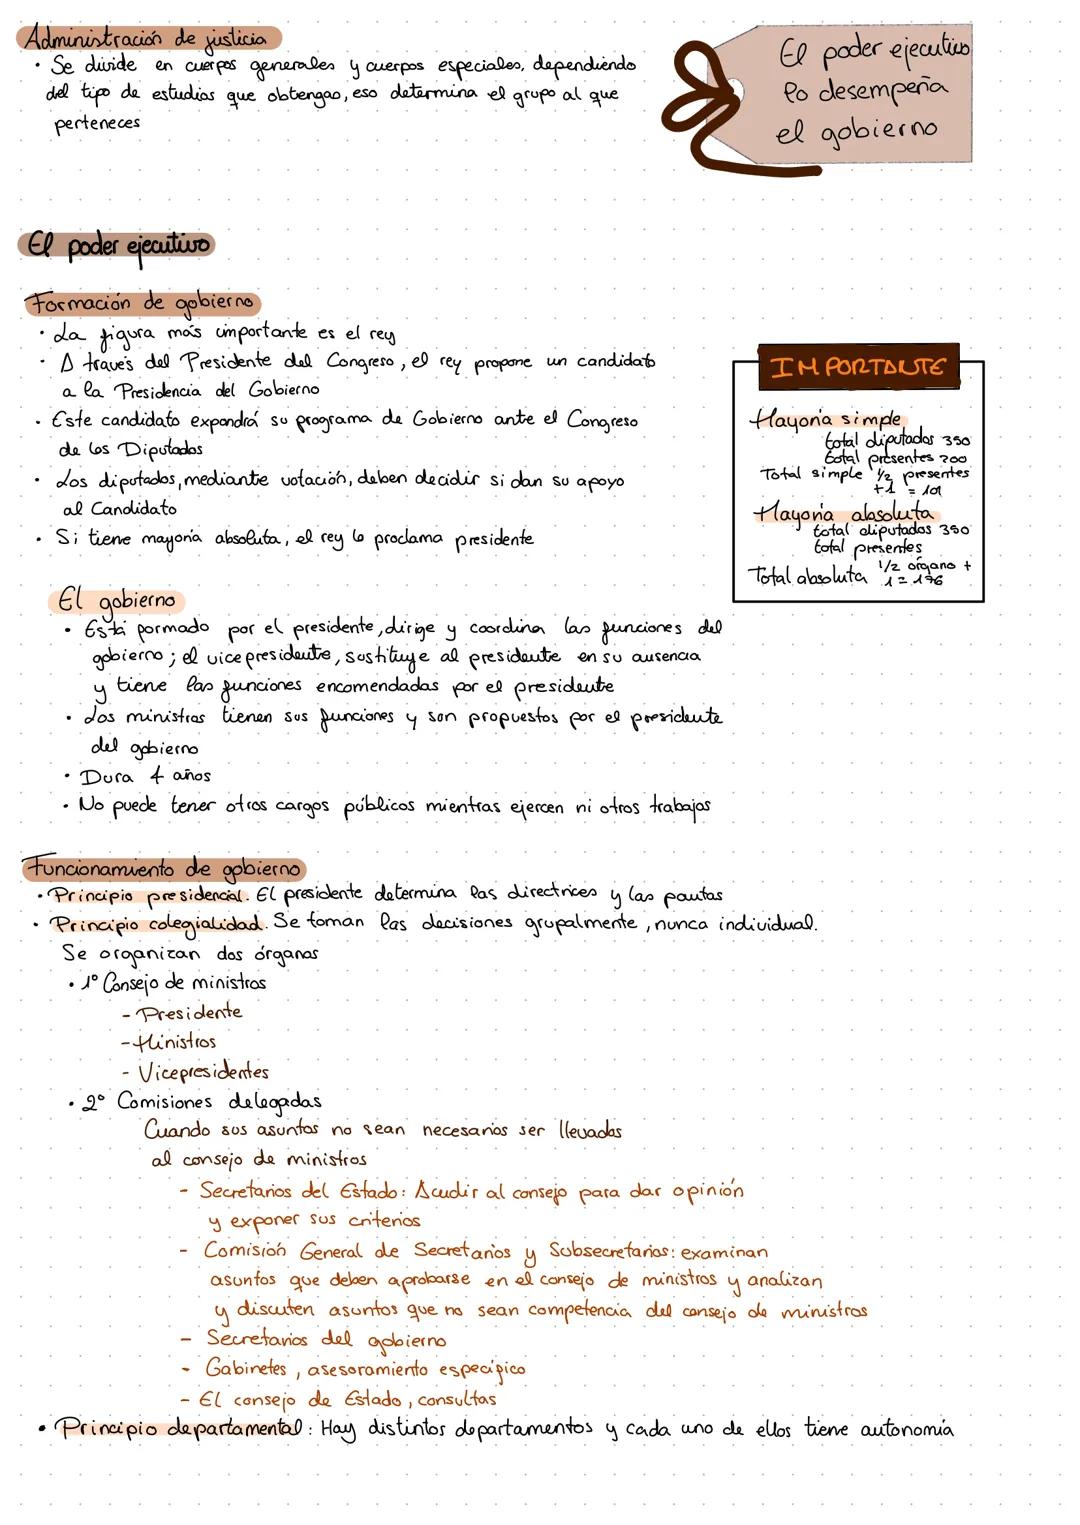 Administración de justicia
• Se divide en cuerpos generales y cuerpos especiales, dependiendo
del tipo de estudios que obtengas, eso determina el grupo al que
perteneces
El poder ejecutivo
lo desempeña
el gobierno
El poder ejecutivo
Formación de gobierno
• La figura más importante es el rey
• A través del Presidente del Congreso, el rey propone un candidato
a la Presidencia del Gobierno
• Este candidato expondrá su programa de Gobierno ante el Congreso
de los Diputados
• Los diputados, mediante votación, deben decidir si dan su apoyo
al Candidato
• Si tiene mayoría absoluta, el rey lo proclama presidente
IMPORTANTE
Mayoría simple
total diputados 350
total presentes 200
Total simple 1/2 presentes
+1 = 101
Mayoría absoluta
total diputados 350
total presentes
Total absoluta 1/2 órgano +
1 = 176
El gobierno
• Está formado por el presidente, dirige y coordina las funciones del
gobierno; el vicepresidente, sustituye al presidente en su ausencia
y tiene las funciones encomendadas por el presidente
• Los ministros tienen sus funciones y son propuestos por el presidente
del gobierno
• Dura 4 años
• No puede tener otros cargos públicos mientras ejercen ni otros trabajos
Funcionamiento de gobierno
• Principio presidencial. El presidente determina las directrices y las pautas
• Principio colegialidad. Se toman las decisiones grupalmente, nunca individual.
Se organizan dos órganos
• 1º Consejo de ministros
- Presidente
- Ministros
- Vicepresidentes
• 2º Comisiones delegadas
Cuando sus asuntos no sean necesarios ser llevados
al consejo de ministros
- Secretarios del Estado: Acudir al consejo para dar opinión
y exponer sus criterios
- Comisión General de Secretarios y Subsecretarios: examinan
asuntos que deben aprobarse en el consejo de ministros y analizan
y discuten asuntos que no sean competencia del consejo de ministros
- Secretarios del gobierno
- Gabinetes, asesoramiento específico
- El consejo de Estado, consultas
• Principio departamental: Hay distintos departamentos y cada uno de ellos tiene autonomía